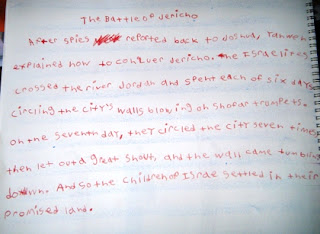 The Battle of Jericho
After spies reported back to Joshua, Yahweh
explained how to conquer Jericho. The Israelites
crossed the river Jordan and spent each of six days
circling the city's walls blowing on shofar trumpets.
on the seventh day, they circled the city seven times
then let out a great shout, and the wall came tumbling
down. And so the children of Israe settled in their
promised land.